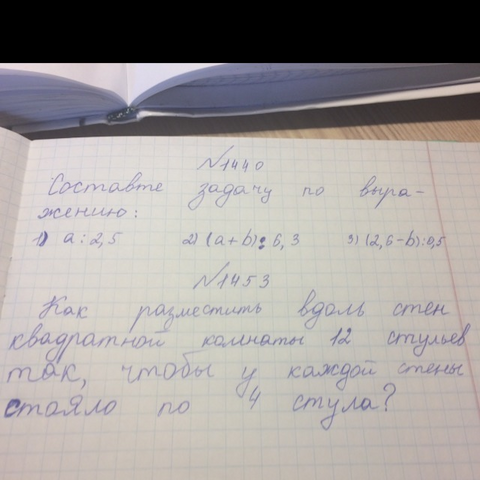 №1440
Составте задачу по выра-
жению:
1) а : 2,5 2) (а+b) : 6,3 3) (2,6-b):0,5
№1453
Как разместить вдоль стен
квадратной комнаты 12 стульев
так, чтобы у каждой стены
стояло по 4 стула?